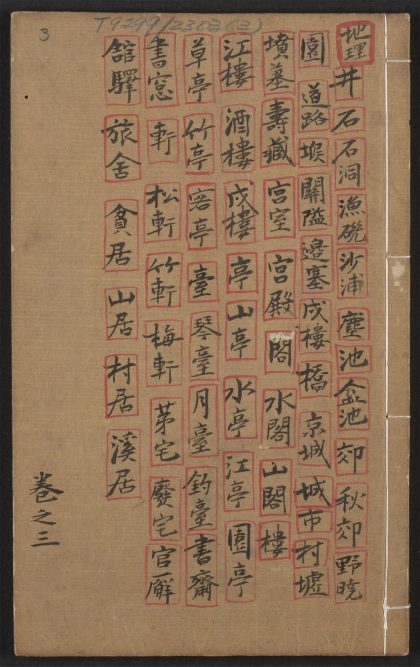 T9299/2303(3)
3
地理 井 石 石洞 漁磯 沙浦 塵 池 盆池 郊 秋郊 野曉
園 道路 堠 關隘 邊塞 戍樓 橋 京城 城市 村墟
墳墓 壽藏 宮室 宮殿 閣 水閣 山閣 樓
江樓 酒樓 戍樓 亭 山亭 水亭 江亭 園亭
草亭 竹亭 客亭 臺 琴臺 月臺 釣臺 書齋
書窓 軒 松軒 竹軒 梅軒 苐宅 廢宅 官廨
舘驛 旅舍 貧居 山居 村居 溪居
卷之三